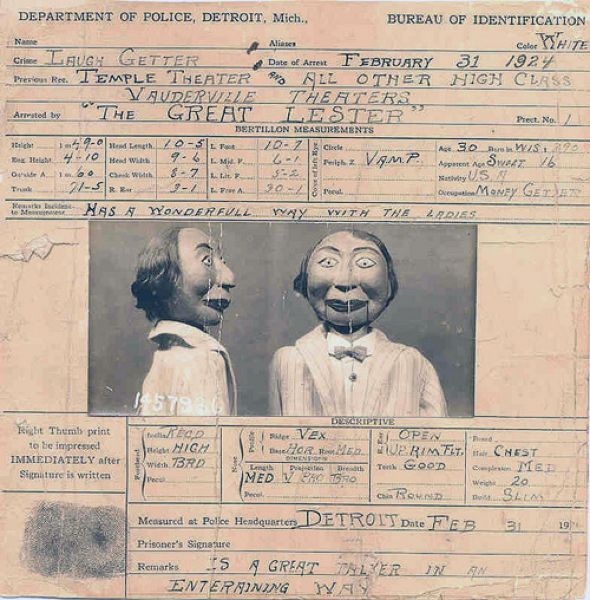 DEPARTMENT OF POLICE, DETROIT, Mich., BUREAU OF IDENTIFICATION
Name Aliases Color WHITE
Crime LAUGH GETTER Date of Arrest FEBRUARY 31 1924
Previous Rec. TEMPLE THEATER AND ALL OTHER HIGH CLASS
VAUDERVILLE THEATERS
Arrested by "THE GREAT LESTER" Prect. No. 1
BERTILLON MEASUREMENTS
Height 1 m 49-0 Head Length 10-5 L. Foot 10-7 Circle Age 30 Born in WIS
Eng. Height 4-10 Head Width 9-6 L. Mid. F. 6-1 Periph. Z VAMP. Apparent Age SWEET 16
Outside A. 1 m 60 Cheek Width 8-7 L. Lit. F. 5-2 Nativity U.S.A
Trunk 71-5 R. Ear 3-1 L. Fore A. 30-1 Pecul. Occupation MONEY GETTER
Remarks Incident to Measurement HAS A WONDERFULL WAY WITH THE LADIES
1457986
DESCRIPTIVE
Right Thumb print
to be impressed
IMMEDIATELY after
Signature is written
Forehead Inclin. RECD Nose Profile Ridge VEX OPEN Beard
Height HIGH Base HOR. Root MED UP RIM FLT. Hair CHEST
Width BRD DIMENSIONS Teeth GOOD Complexion MED
Pecul. Length Projection Breadth Weight 20
MED V PRO BRO
Pecul. Chin ROUND Build SLIM
Measured at Police Headquarters DETROIT Date FEB 31 19
Prisoner's Signature
Remarks IS A GREAT TALKER IN AN
ENTERAINING WAY